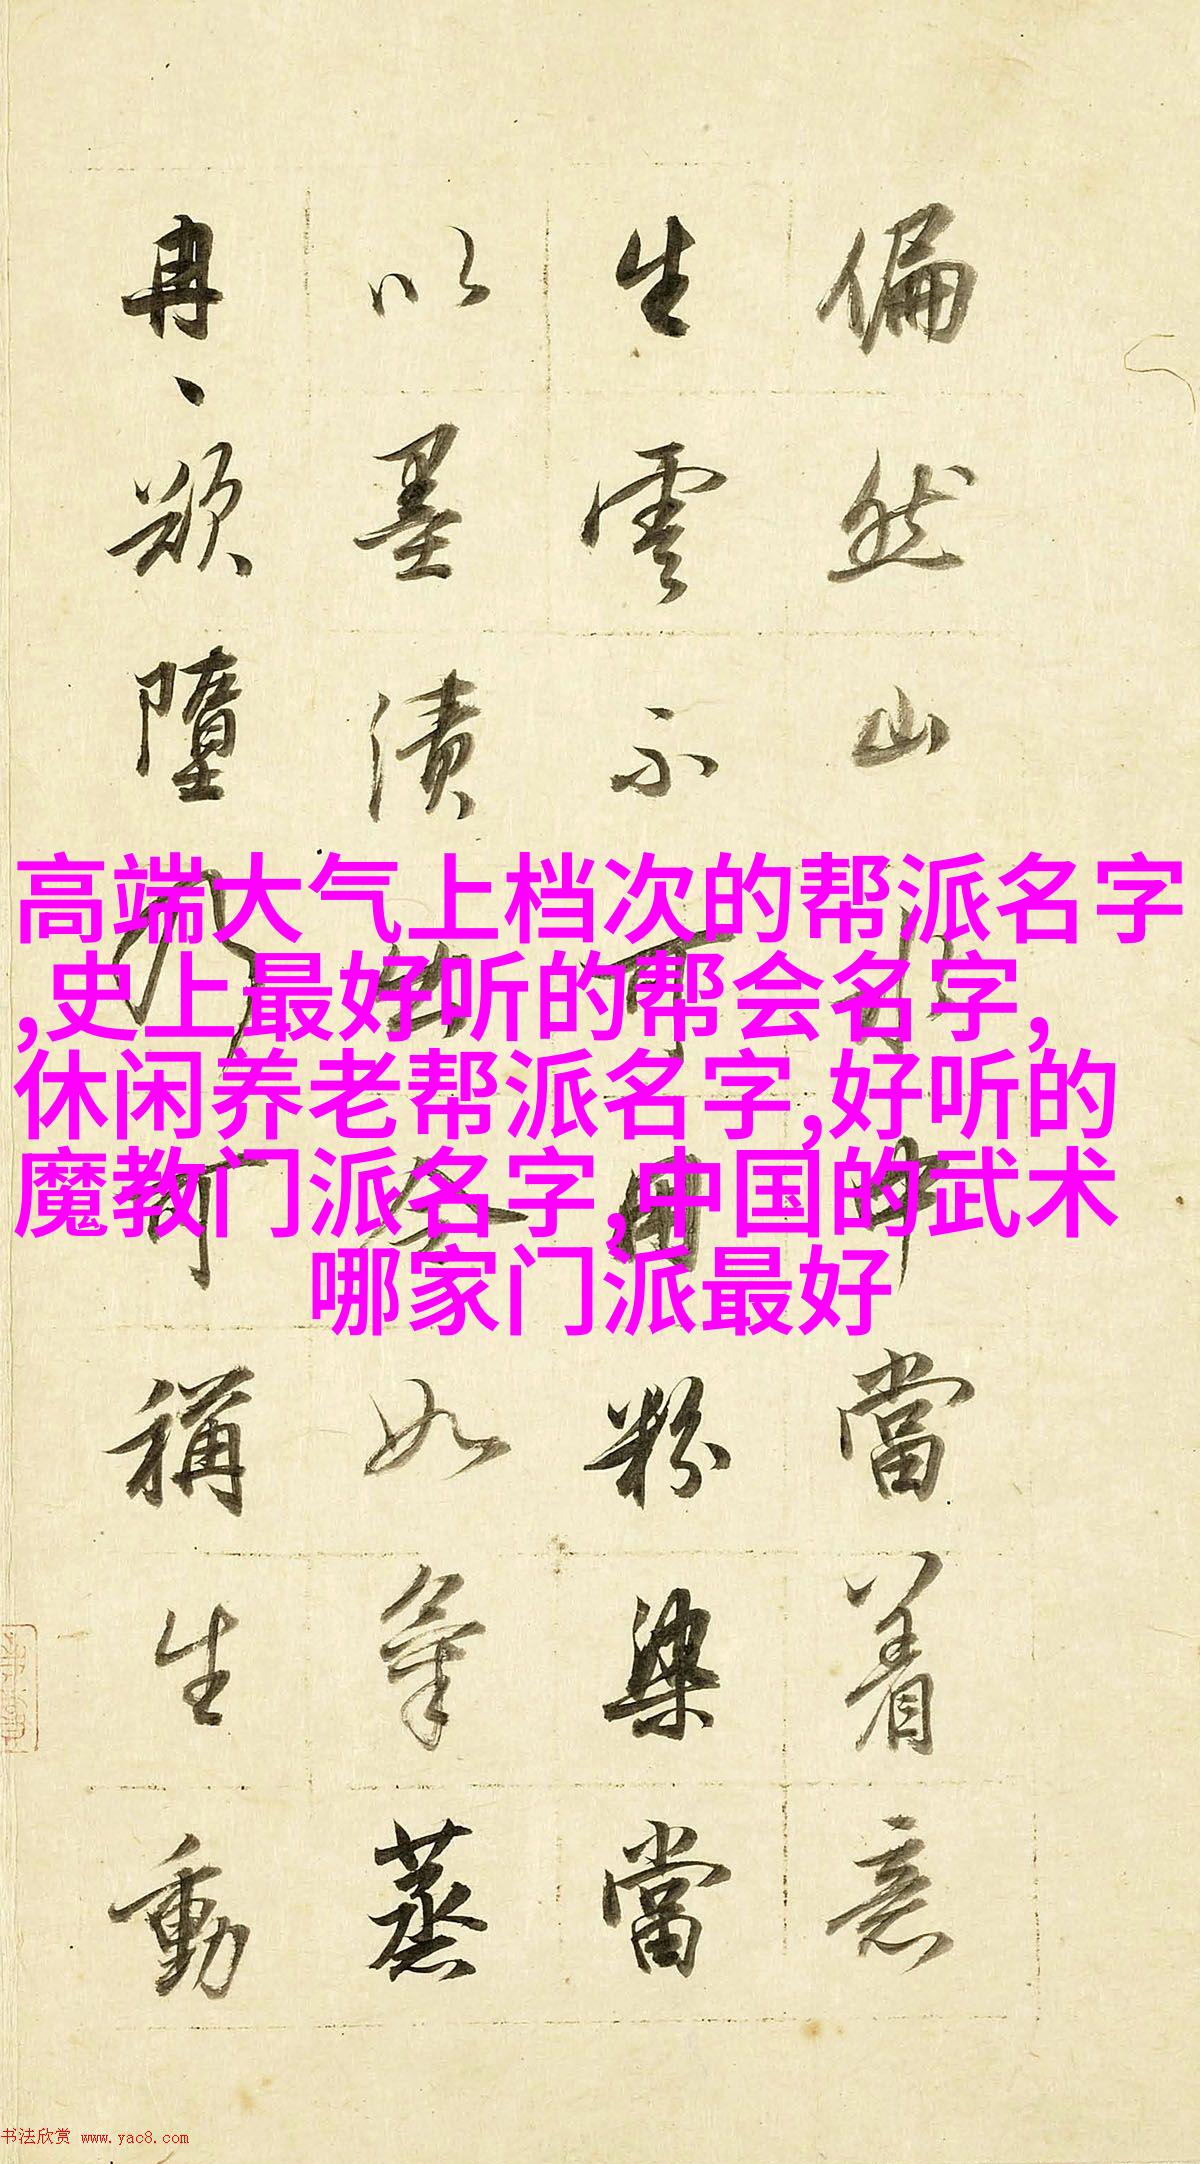 偏然山水中當着意
生雲不可用粉染當
以墨漬出令如氣蒸
冉〻欲墮乃可稱生動
高端大气上档次的帮派名字
,史上最好听的帮会名字,
休闲养老帮派名字,好听的
魔教门派名字,中国的武术
哪家门派最好
书法欣赏 www.yac8.com